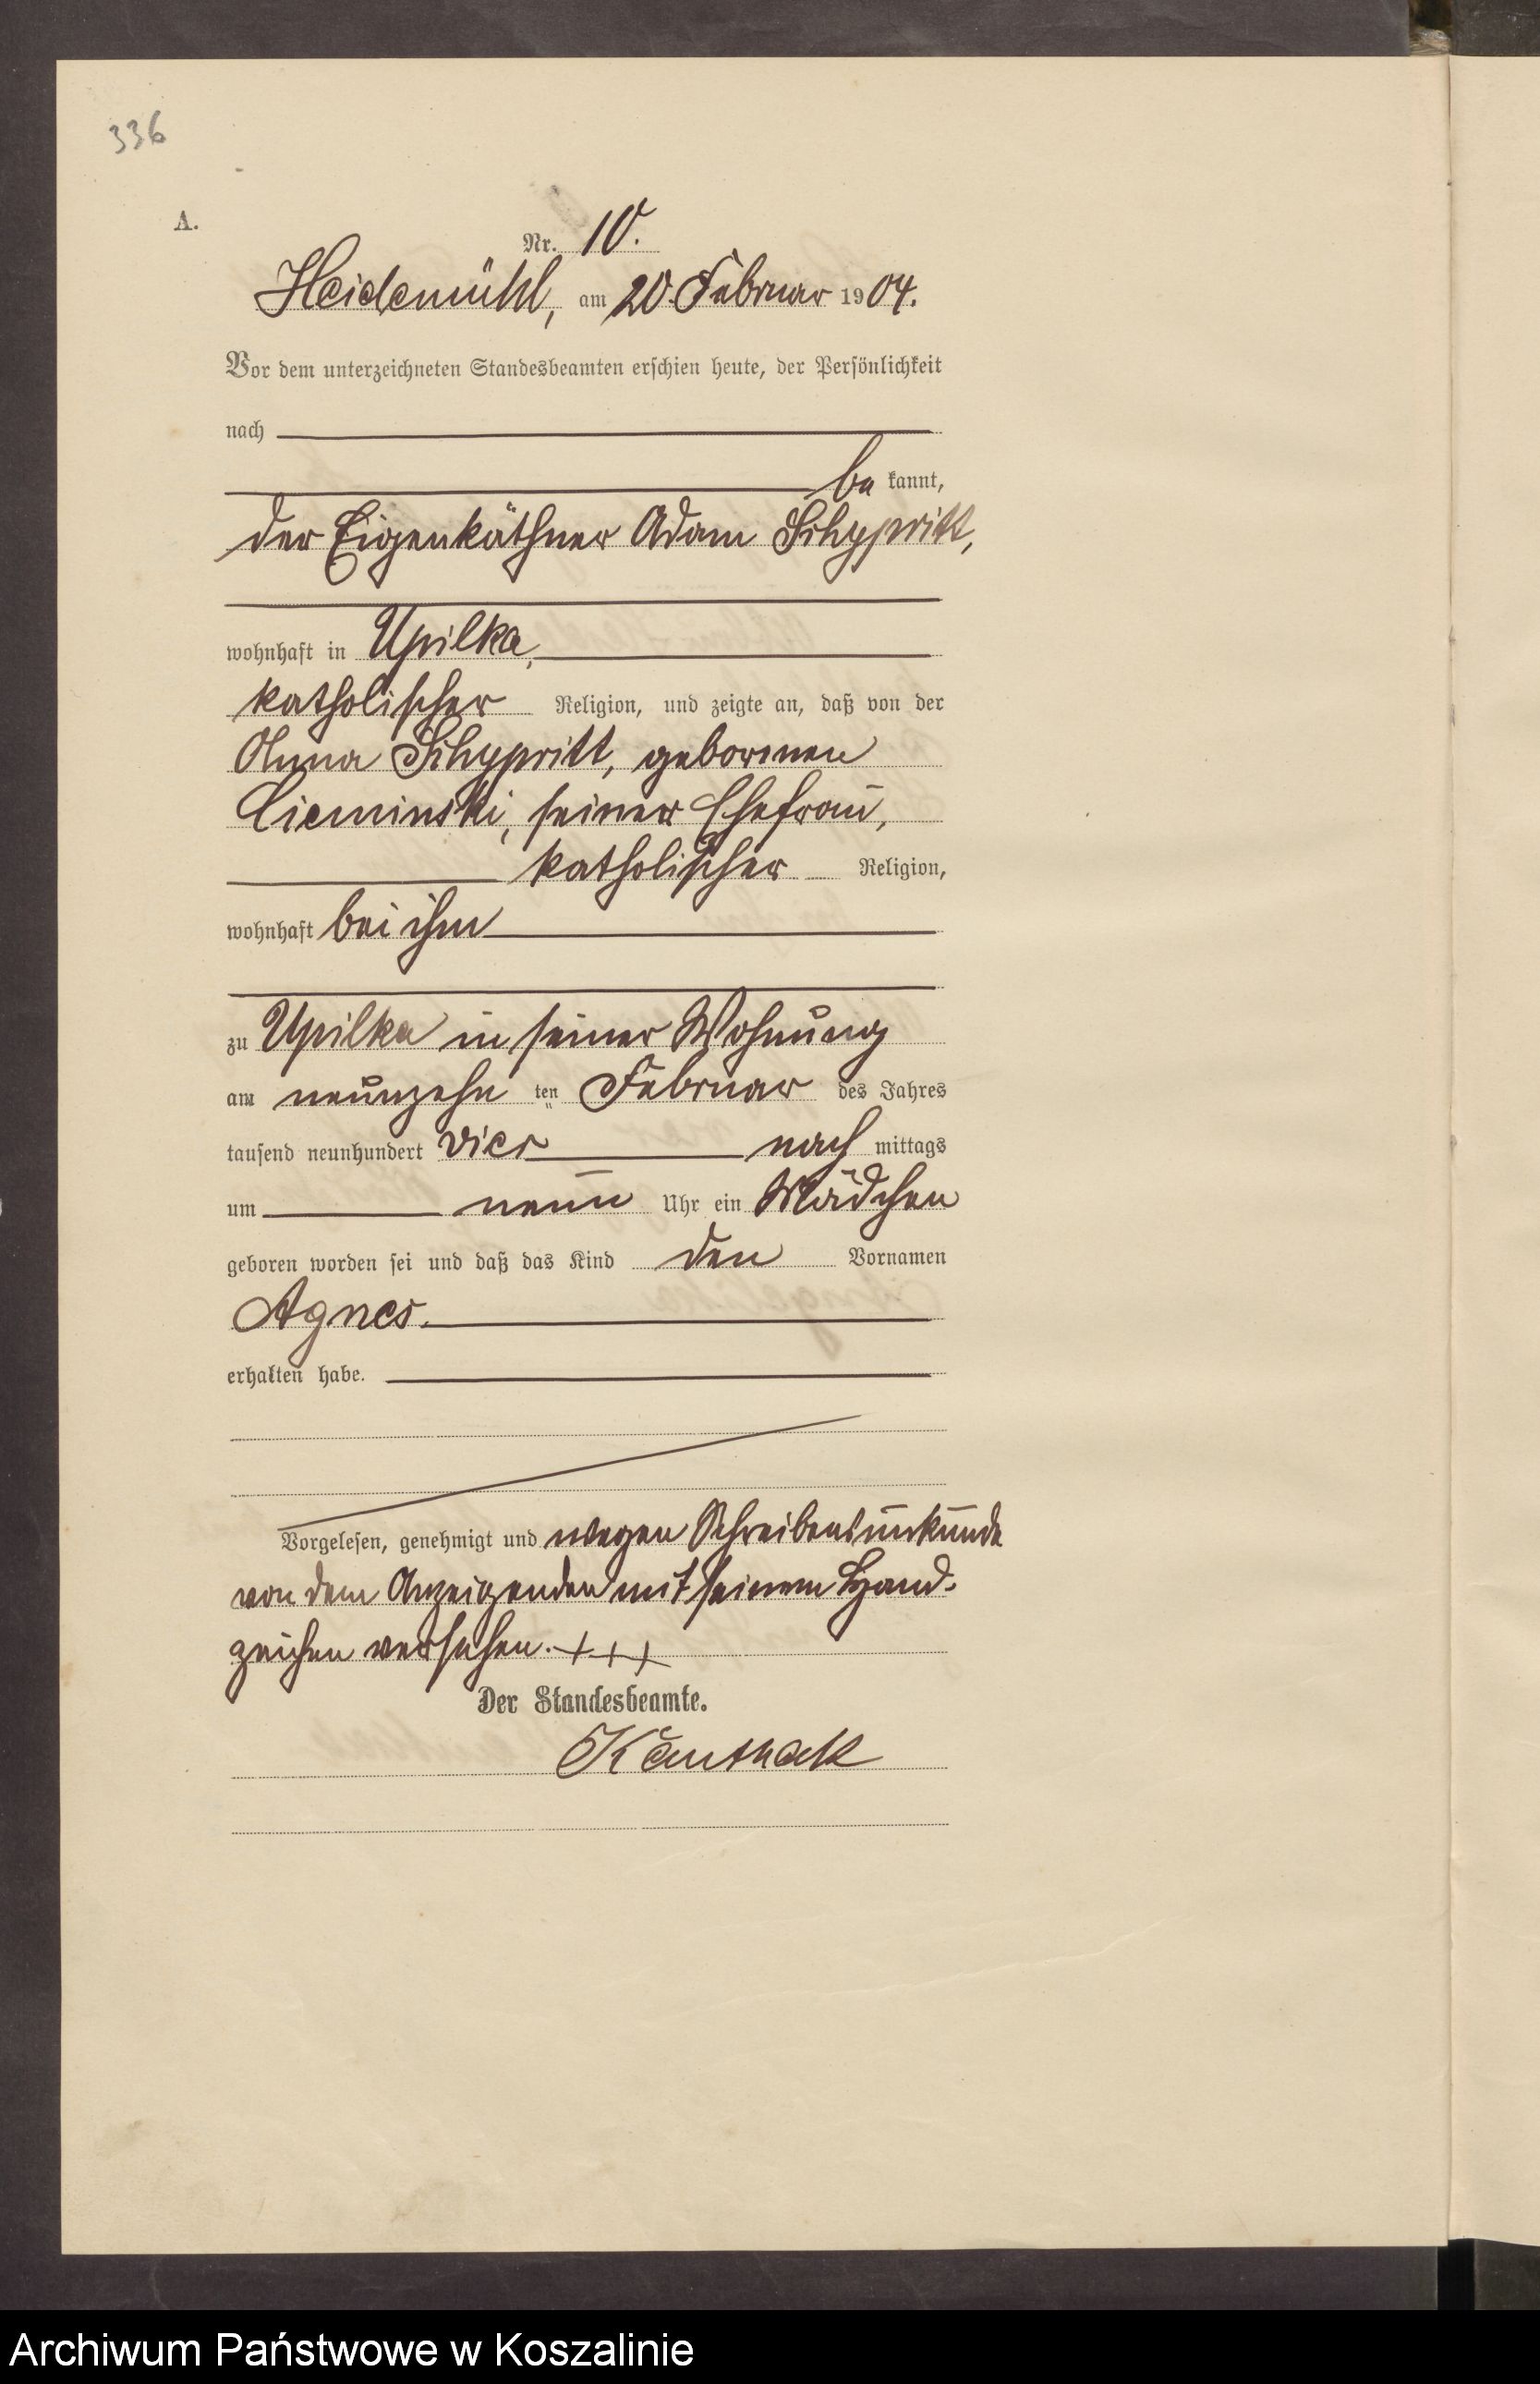 336
A.
Nr. 10.
Heidemühl, am 20. Februar 1904.
Vor dem unterzeichneten Standesbeamten erschien heute, der Persönlichkeit
nach
be kannt,
der Eigenkäthner Adam Schypritt,
wohnhaft in Upilka,
katholischer Religion, und zeigte an, daß von der
Anna Schypritt, geborenen
Cieminski, seiner Ehefrau,
katholischer Religion,
wohnhaft bei ihm
zu Upilka in seiner Wohnung
am neunzehn ten Februar des Jahres
tausend neunhundert vier nach mittags
um neun Uhr ein Mädchen
geboren worden sei und daß das Kind den Vornamen
Agnes.
erhalten habe.
Vorgelesen, genehmigt und wegen Schreibensunkunde
von dem Anzeigenden mit seinem Hand-
zeichen versehen. +++
Der Standesbeamte.
Archiwum Państwowe w Koszalinie